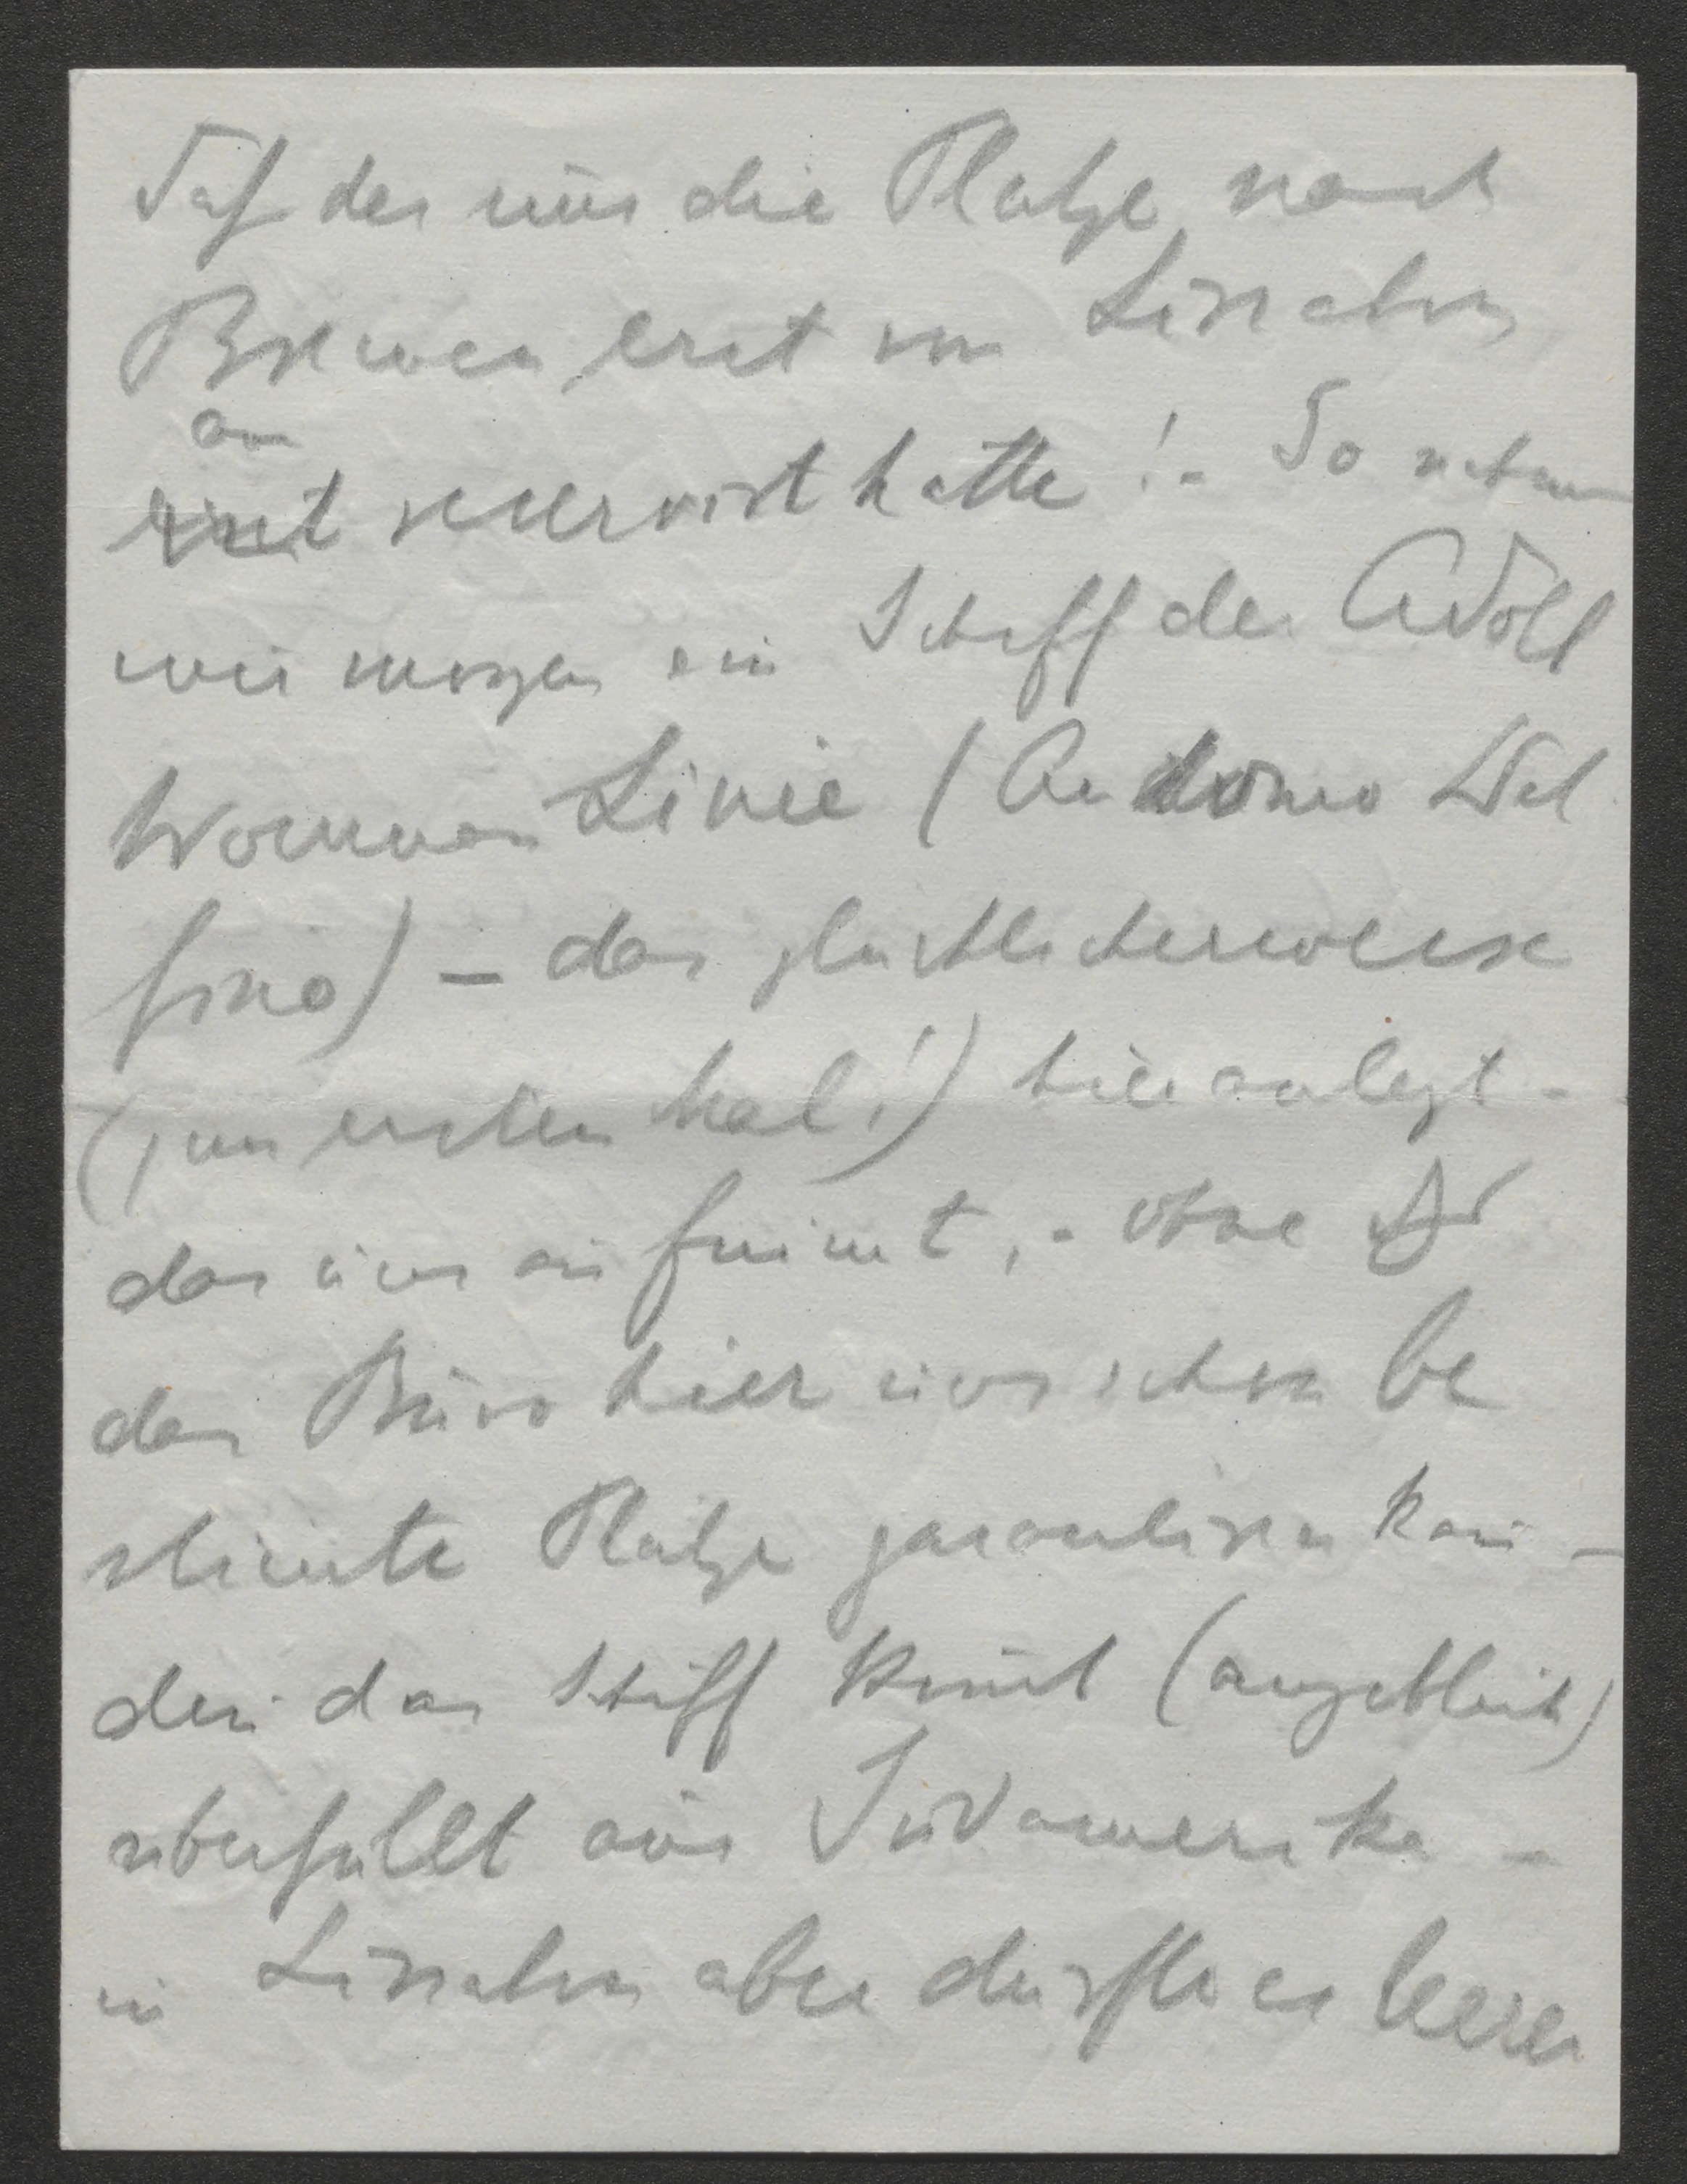 Daß der uns die Plätze nach
Bremen erst von Lissabon
an
erst reserviert hatte! - So nehmen
wir morgen ein Schiff der Adolf
Woermann Linie (Antonio Del
fino) - das glücklicherweise
(zum ersten Mal!) hier anlegt -
das uns aufnimmt, - ohne daß
das Büro hier uns schon be
stimmte Plätze garantieren kann -
denn das Schiff kommt (angeblich)
überfüllt aus Südamerika -
in Lissabon aber dürfte es leerer